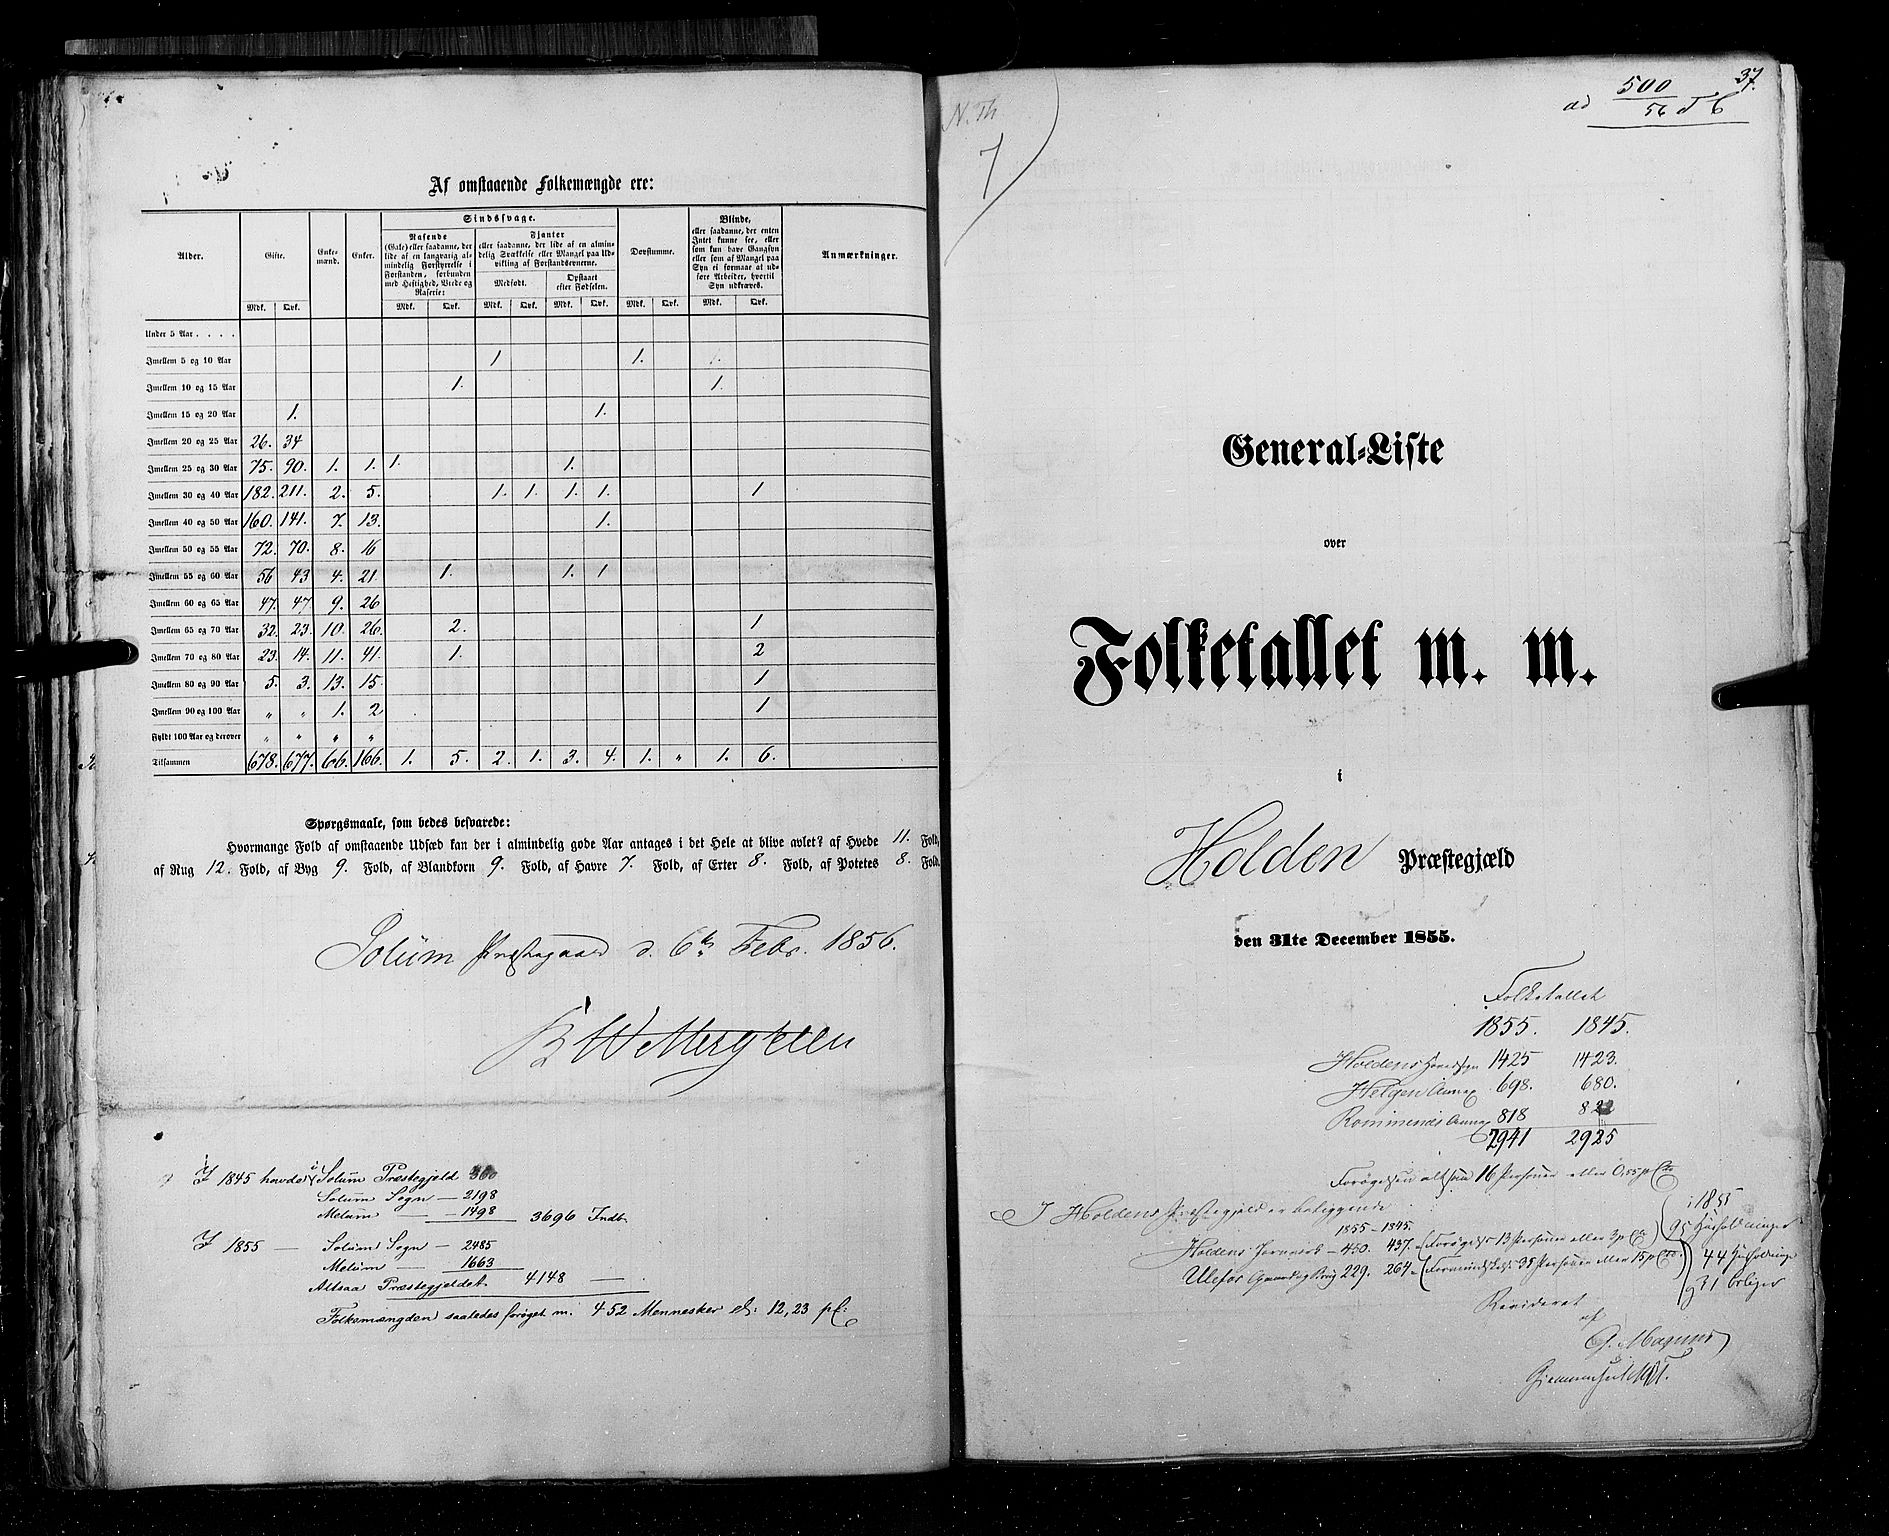 Af omstaaende Folkemængde ere:
Alder. Gifte. Enkemænd. Enker. Sindssvage. Døvstumme. Blinde, eller saadanne, der enten Intet kunne see, eller som kun have Gangsyn eller som af Mangel paa Syn ei formaae at udføre Arbeider, hvortil Syn udkræves. Anmærkninger.
Rasende (Gale) eller saadanne, der lide af en langvarig almindelig Forstyrrelse i Forstanden, forbunden med Heftighed, Vrede og Raserie:
Fjanter eller saadanne, der lide af en almindelig Svækkelse eller Mangel paa Udvikling af Forstandsevnerne.
Medfødt. Opstaaet efter Fødselen.
Mdk. Qvk. Mdk. Qvk. Mdk. Qvk. Mdk. Qvk. Mdk. Qvk. Mdk. Qvk.
Under 5 Aar . . . .
Imellem 5 og 10 Aar 1 1. 1.
Imellem 10 og 15 Aar 1. 1.
Imellem 15 og 20 Aar 1. 1.
Imellem 20 og 25 Aar 26. 34
Imellem 25 og 30 Aar 75. 90. 1. 1. 1. 1.
Imellem 30 og 40 Aar 182. 211. 2. 5. 1. 1. 1. 1. 1
Imellem 40 og 50 Aar 160. 141. 7. 13. 1.
Imellem 50 og 55 Aar 72. 70. 8. 16
Imellem 55 og 60 Aar 56 43 4. 21. 1. 1. 1
Imellem 60 og 65 Aar 47. 47 9. 26
Imellem 65 og 70 Aar 32. 23. 10. 26. 2. 1
Imellem 70 og 80 Aar 23. 14. 11. 41. 1. 2
Imellem 80 og 90 Aar 5. 3. 13. 15. 1
Imellem 90 og 100 Aar " " 1. 2 1
Fyldt 100 Aar og derover " " " "
Tilsammen 678. 677. 66. 166. 1. 5. 2. 1. 3. 4. 1. " 1. 6.
Spørgsmaale, som bedes besvarede:
Hvormange Fold af omstaaende Udsæd kan der i almindelig gode Aar antages i det Hele at blive avlet? af Hvede 11. Fold,
af Rug 12. Fold, af Byg 9. Fold, af Blandkorn 9. Fold, af Havre 7. Fold, af Erter 8. Fold, af Potetes 8. Fold.
Solum Præstegaard d. 6te Febr. 1856.
I 1845 havde i Solum Præstegjeld
Solum Sogn — 2198
Melum — 1498 3696 Indb.
I 1855 — Solum Sogn — 2485
Melum — 1663
Altsaa Præstegjeldet. 4148 —
Folkemængden saaledes forøget m. 452 Mennesker el: 12,23 pC:
37.
ad 500
56 d 6
N. Th
7
General-Liste
over
Folketallet m. m.
i
Holden Præstegjæld
den 31te December 1855.
Folketallet
1855. 1845.
Holdens Hovedsogn 1425 1423.
Helgen Annex 698. 680.
Romnenæs Annex 818 822
2941 2925
Forøgelsen altsaa 16 Personer eller 0,55 pCto
I Holdens Præstegjeld er beliggende
1855 - 1845. i 1855
Holdens Jernværk - 450. 437. - (Forøgelse 13 Personer eller 3 pCto) 95 Huusholdninger
Ulefos Gaard og Brug 229. 264 - (Formindskelse 35 Personer eller 15 pCto.) 44 Huusholdninger
og 31 boliger
Revideret
af